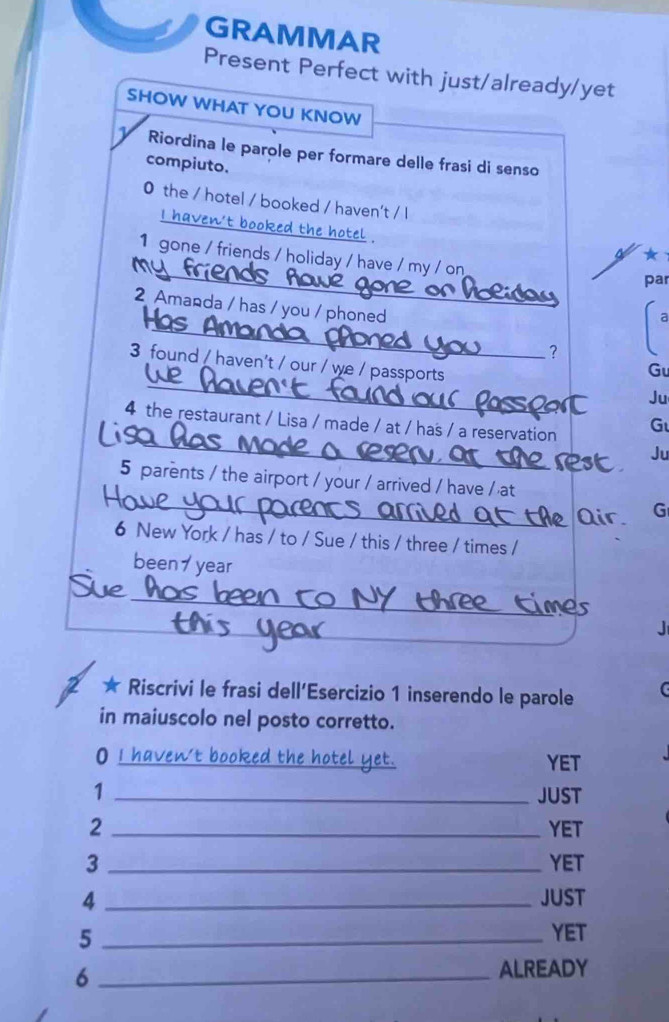 GRAMMAR
Present Perfect with just/already/yet
SHOW WHAT YOU KNOW
1 Riordina le parole per formare delle frasi di senso
compiuto.
0 the / hotel / booked / haven't / I
I haven't booked the hotel .
1 gone / friends / holiday / have / my / on
my friends have gone on holiday
2 Amanda / has / you / phoned
Has Amanda phoned you ?
3 found / haven't / our / we / passports
We haven't found our passport
4 the restaurant / Lisa / made / at / has / a reservation
Lisa has made a reserv. at the rest.
5 parents / the airport / your / arrived / have / at
Have your parents arrived at the air.
6 New York / has / to / Sue / this / three / times /
been / year
Sue has been to NY three times
this year
2 ★ Riscrivi le frasi dell'Esercizio 1 inserendo le parole
in maiuscolo nel posto corretto.
0 I haven't booked the hotel yet. YET
1 JUST
2 YET
3 YET
4 JUST
5 YET
6 ALREADY
★
par
a
Gu
Ju
Gu
Ju
G